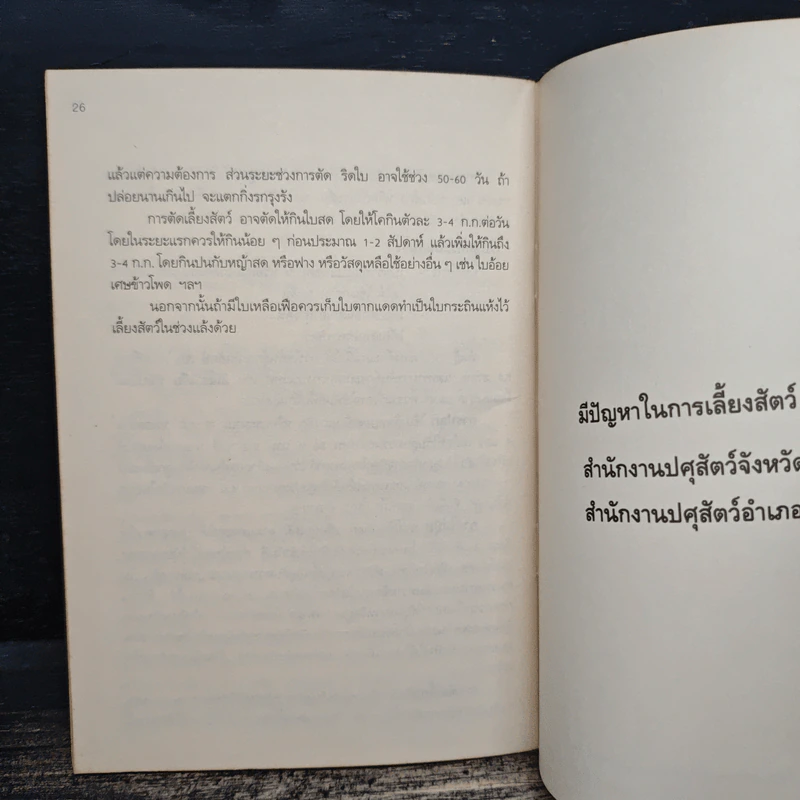 26
แล้วแต่ความต้องการ ส่วนระยะช่วงการตัด ริดใบ อาจใช้ช่วง 50-60 วัน ถ้า
ปล่อยนานเกินไป จะแตกกิ่งรกรุงรัง
การตัดเลี้ยงสัตว์ อาจตัดให้กินใบสด โดยให้โคกินตัวละ 3-4 ก.ก.ต่อวัน
โดยในระยะแรกควรให้กินน้อย ๆ ก่อนประมาณ 1-2 สัปดาห์ แล้วเพิ่มให้กินถึง
3-4 ก.ก. โดยกินปนกับหญ้าสด หรือฟาง หรือวัสดุเหลือใช้อย่างอื่น ๆ เช่น ใบอ้อย
เศษข้าวโพด ฯลฯ
นอกจากนั้นถ้ามีใบเหลือเฟือควรเก็บใบตากแดดทำเป็นใบกระถินแห้งไว้
เลี้ยงสัตว์ในช่วงแล้งด้วย
มีปัญหาในการเลี้ยงสัตว์
สำนักงานปศุสัตว์จังหวัด
สำนักงานปศุสัตว์อำเภอ